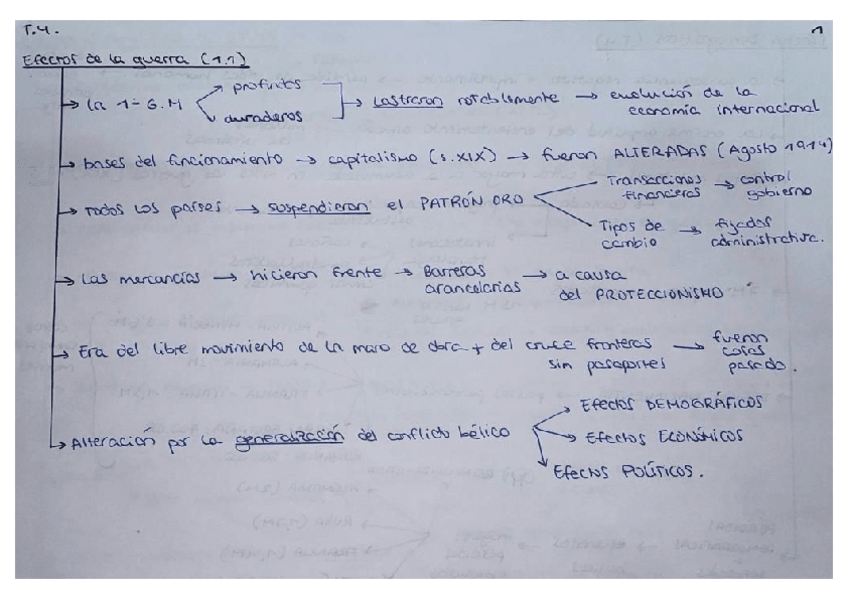 T.4. 1
Efectos de la guerra (1.1)
→ La 1ª G.M → profundos → Lastraron notablemente → evolución de la
duraderos economía internacional
→ bases del funcionamiento → capitalismo (s.XIX) → fueron ALTERADAS (Agosto 1914)
→ Todos los países → suspendieron el PATRÓN ORO → Transacciones → control
financieras gobierno
→ Tipos de → fijados
cambio administrativa.
→ Las mercancías → hicieron frente → Barreras → a causa
arancelarias del PROTECCIONISMO
→ Era del libre movimiento de la mano de obra + del cruce fronteras → fueron
sin pasaportes cosas
pasado.
→ Alteración por la generalización del conflicto bélico → Efectos DEMOGRÁFICOS
→ Efectos ECONÓMICOS
→ Efectos POLÍTICOS.